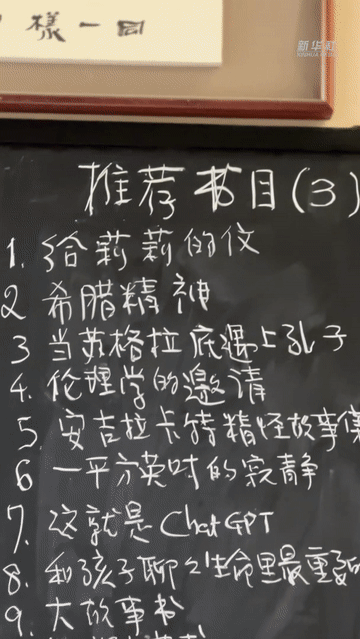 樣一同
新华社
XINHUA NEWS
推荐书目(3)
1. 给莉莉的仪
2 希腊精神
3 当苏格拉底遇上孔子
4. 伦理学的邀请
5. 安吉拉卡特精怪故事集
6 一平方英吋的寂静
7. 这就是ChatGPT
8. 和孩子聊聊生命里最重要的
9. 大故事书